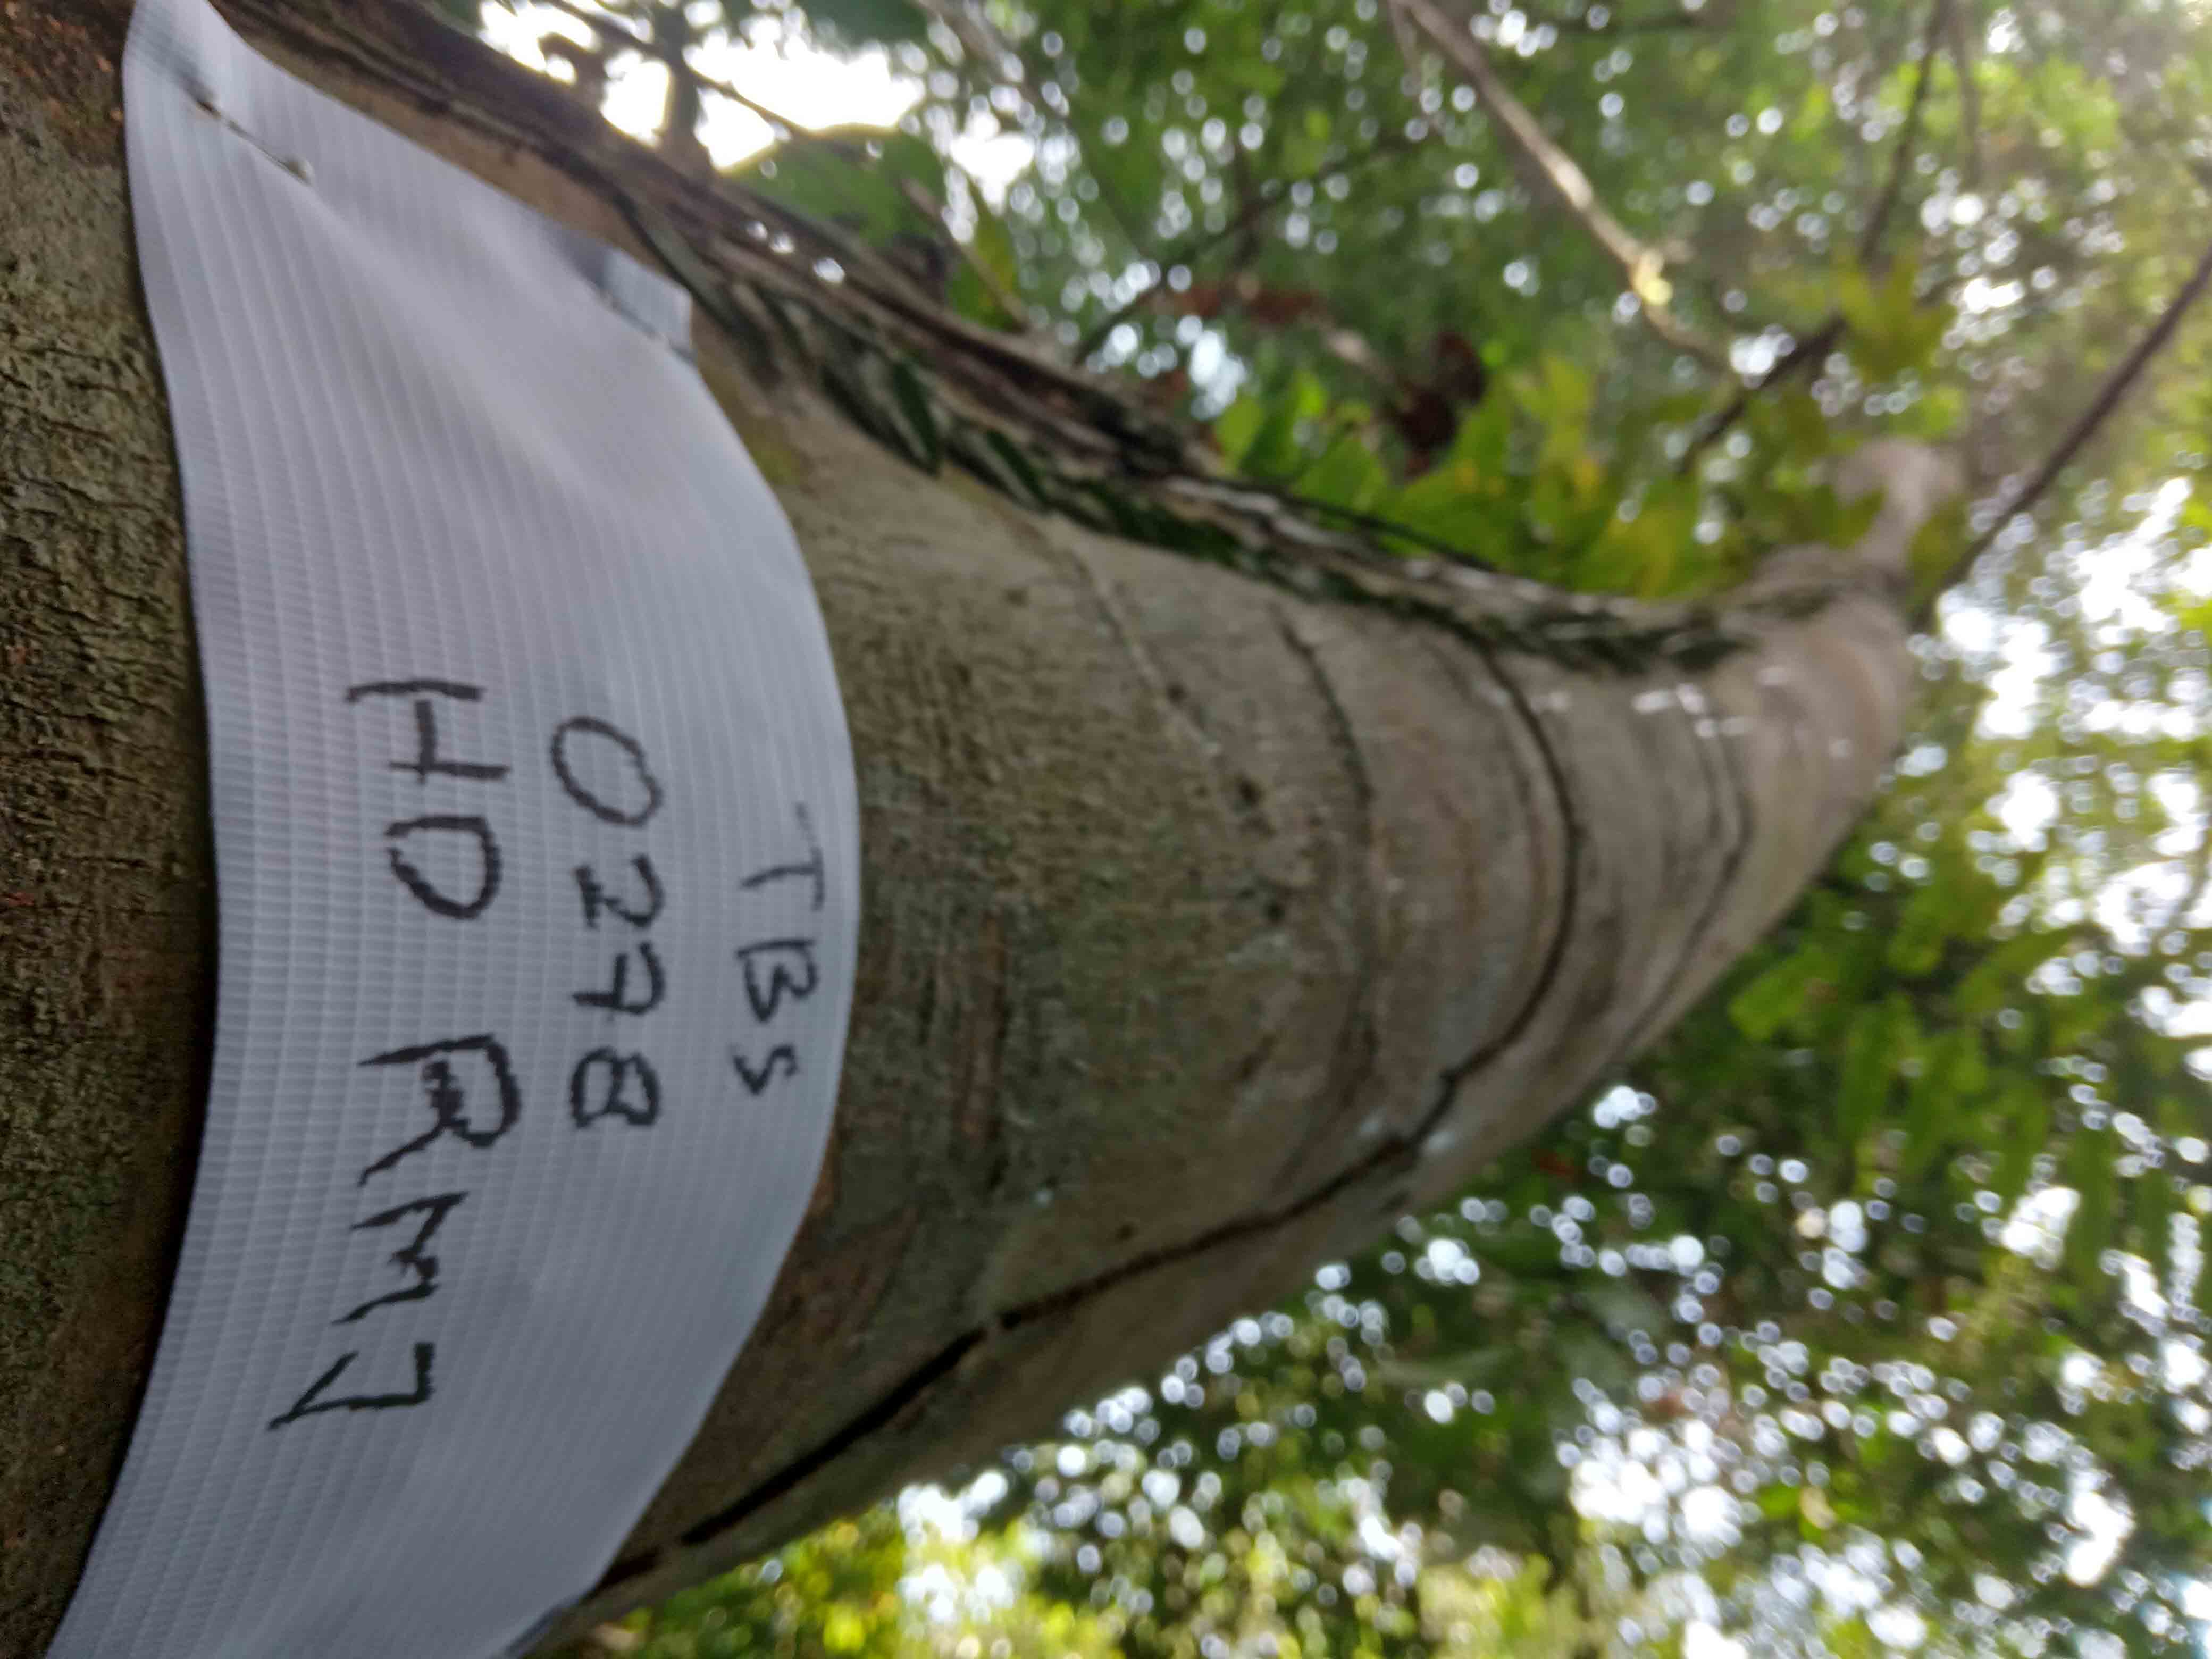 TBS
0278
HD RM7